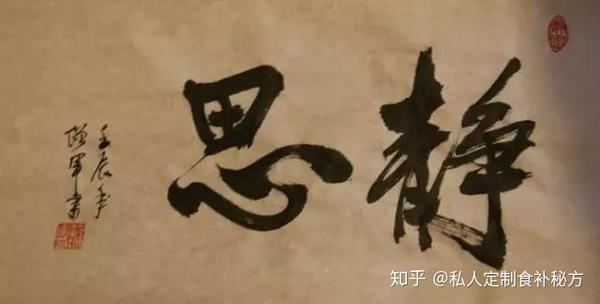 静思
壬辰年
增军书
知乎 @私人定制食补秘方